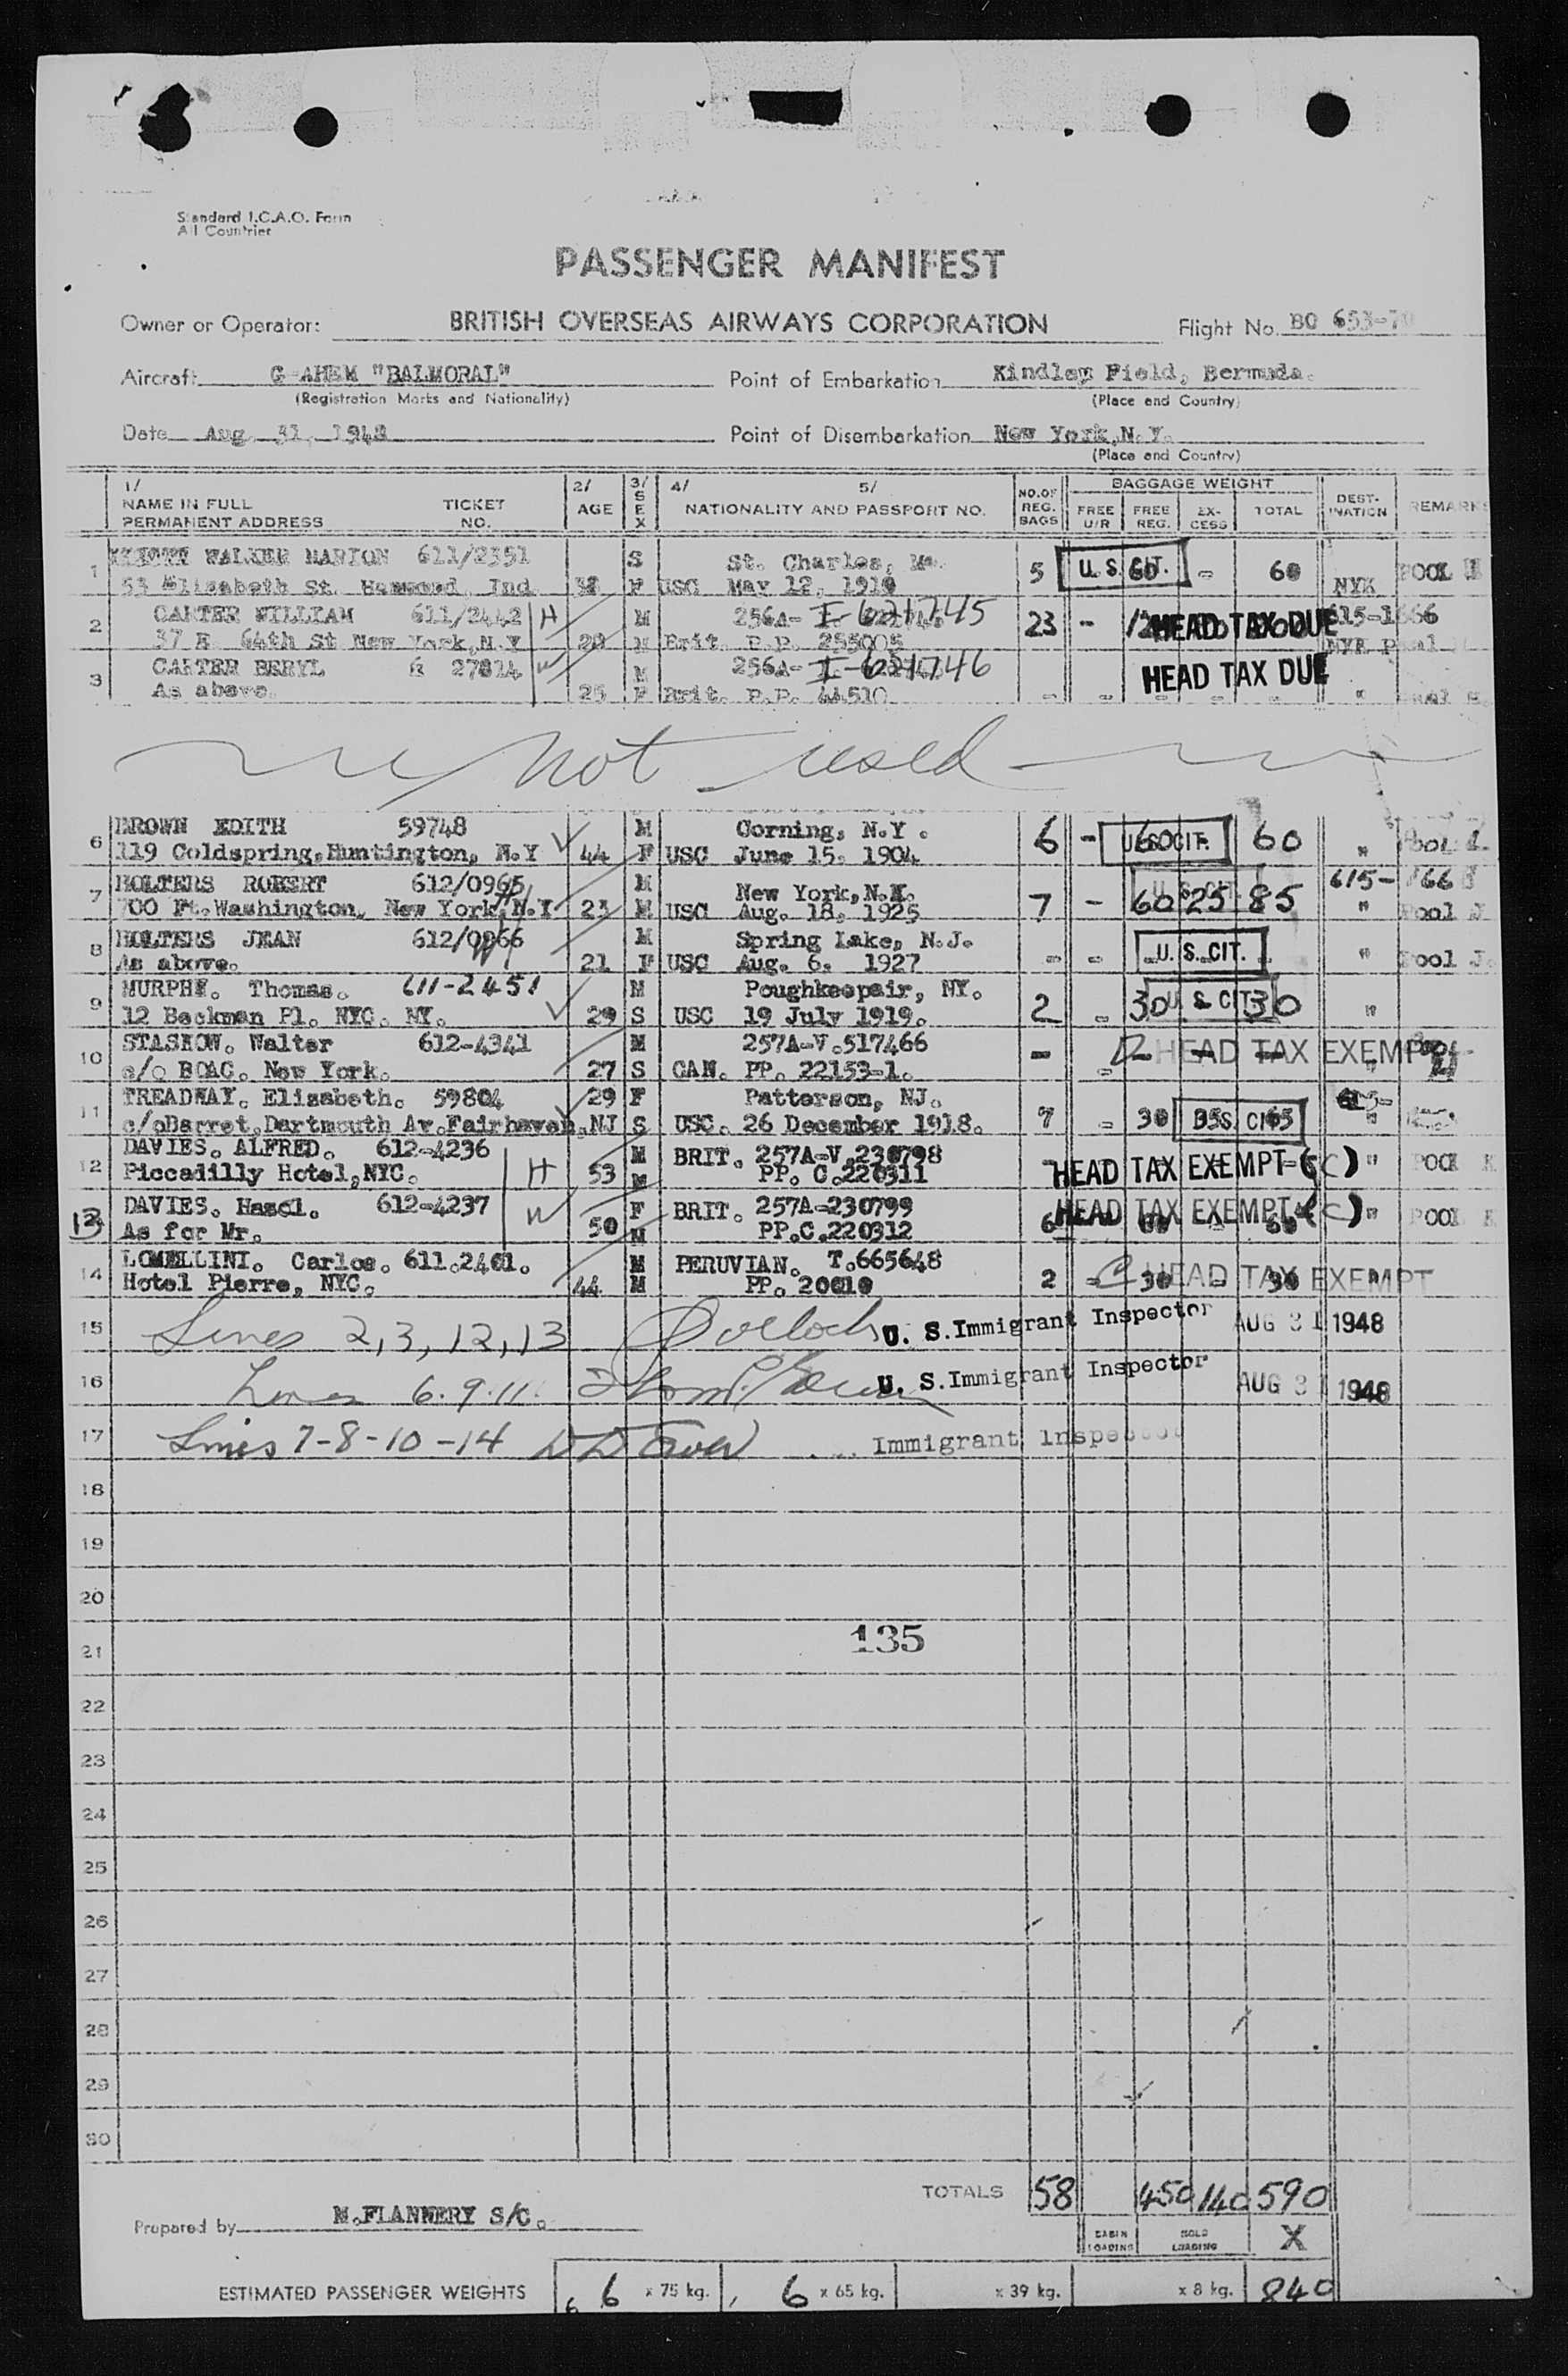 Standard I.C.A.O. Form
All Countries
PASSENGER MANIFEST
Owner or Operator: BRITISH OVERSEAS AIRWAYS CORPORATION Flight No. BO 653-
Aircraft G-AHEM "BALMORAL" Point of Embarkation Kindley Field, Bermuda.
(Registration Marks and Nationality) (Place and Country)
Date Aug. 31, 1948 Point of Disembarkation New York, N.Y.
(Place and Country)
1/ 2/ 3/ 4/ 5/ NO. OF REG. BAGS BAGGAGE WEIGHT DEST-INATION REMARKS
NAME IN FULL TICKET AGE SEX NATIONALITY AND PASSPORT NO. FREE U/R FREE REG. EX-CESS TOTAL
PERMANENT ADDRESS NO.
1 WALKER MARION 611/2351 S St. Charles, 5 U. S. CIT. 60 - 60 POOL
53 Elizabeth St. Hammond, Ind. F USC May 12, 1910 NYK
2 CARTER WILLIAM 611/2442 H M 256A- I-621745 23 - HEAD TAX DUE 615-1666
37 E 64th St New York, N.Y 29 M Brit. P.P. 255005 NYK Pool
3 CARTER BERYL 27814 W M 256A- I-621746 HEAD TAX DUE
As above. 25 F Brit. P.P. 44510 - - - - - "
not used
6 BROWN EDITH 59748 M Corning, N.Y. 6 - 60 U.S. CIT. 60
119 Coldspring, Huntington, N.Y 44 F USC June 15. 1904 " Pool
7 HOLTERS ROBERT 612/0965 M New York, N.Y. 7 - 60 25 85 U. S. CIT. 615-
700 Ft. Washington, New York, N.Y 23 M USC Aug. 18, 1925 " Pool J
8 HOLTERS JEAN 612/0966 M Spring Lake, N.J. - - U. S. CIT.
As above. 21 F USC Aug. 6. 1927 " Pool J.
9 MURPHY. Thomas. 611-2451 M Poughkeepair, NY. 2 - 30 U. S. CIT. 30
12 Beckman Pl. NYC. NY. 29 S USC 19 July 1919. "
10 STASKOW. Walter 612-4341 M 257A-V.517466 - - HEAD TAX EXEMPT
c/o BOAC. New York. 27 S CAN. PP. 22153-1.
11 TREADWAY. Elizabeth. 59804 29 F Patterson, NJ. 7 - 30 35 65 U.S. CIT.
c/oBarret, Dartmouth Av. Fairhaven, NJ S USC. 26 December 1918. "
12 DAVIES. ALFRED. 612-4236 H M BRIT. 257A-V.230798 HEAD TAX EXEMPT-(C) " POOL K
Piccadilly Hotel, NYC. 53 M PP. C.220311
13 DAVIES. Hazel. 612-4237 W F BRIT. 257A-230799 6 HEAD TAX EXEMPT-(C) 60 - 60 " POOL K
As for Mr. 50 M PP.C.220312
14 LOMELLINI. Carlos. 611.2461. M PERUVIAN. T.665648 2 - 30 - 30 HEAD TAX EXEMPT "
Hotel Pierre, NYC. 44 M PP. 20010
15 Lines 2, 3, 12, 13 U. S. Immigrant Inspector AUG 31 1948
16 Lines 6.9.11. U. S. Immigrant Inspector AUG 31 1948
17 Lines 7-8-10-14 Immigrant Inspector
18
19
20
21 135
22
23
24
25
26
27
28
29
30
TOTALS 58 450 140 590
Prepared by M. FLANNERY S/C. CABIN LOADING HOLD LOADING X
ESTIMATED PASSENGER WEIGHTS 6 x 75 kg. 6 x 65 kg. x 39 kg. x 8 kg. 840